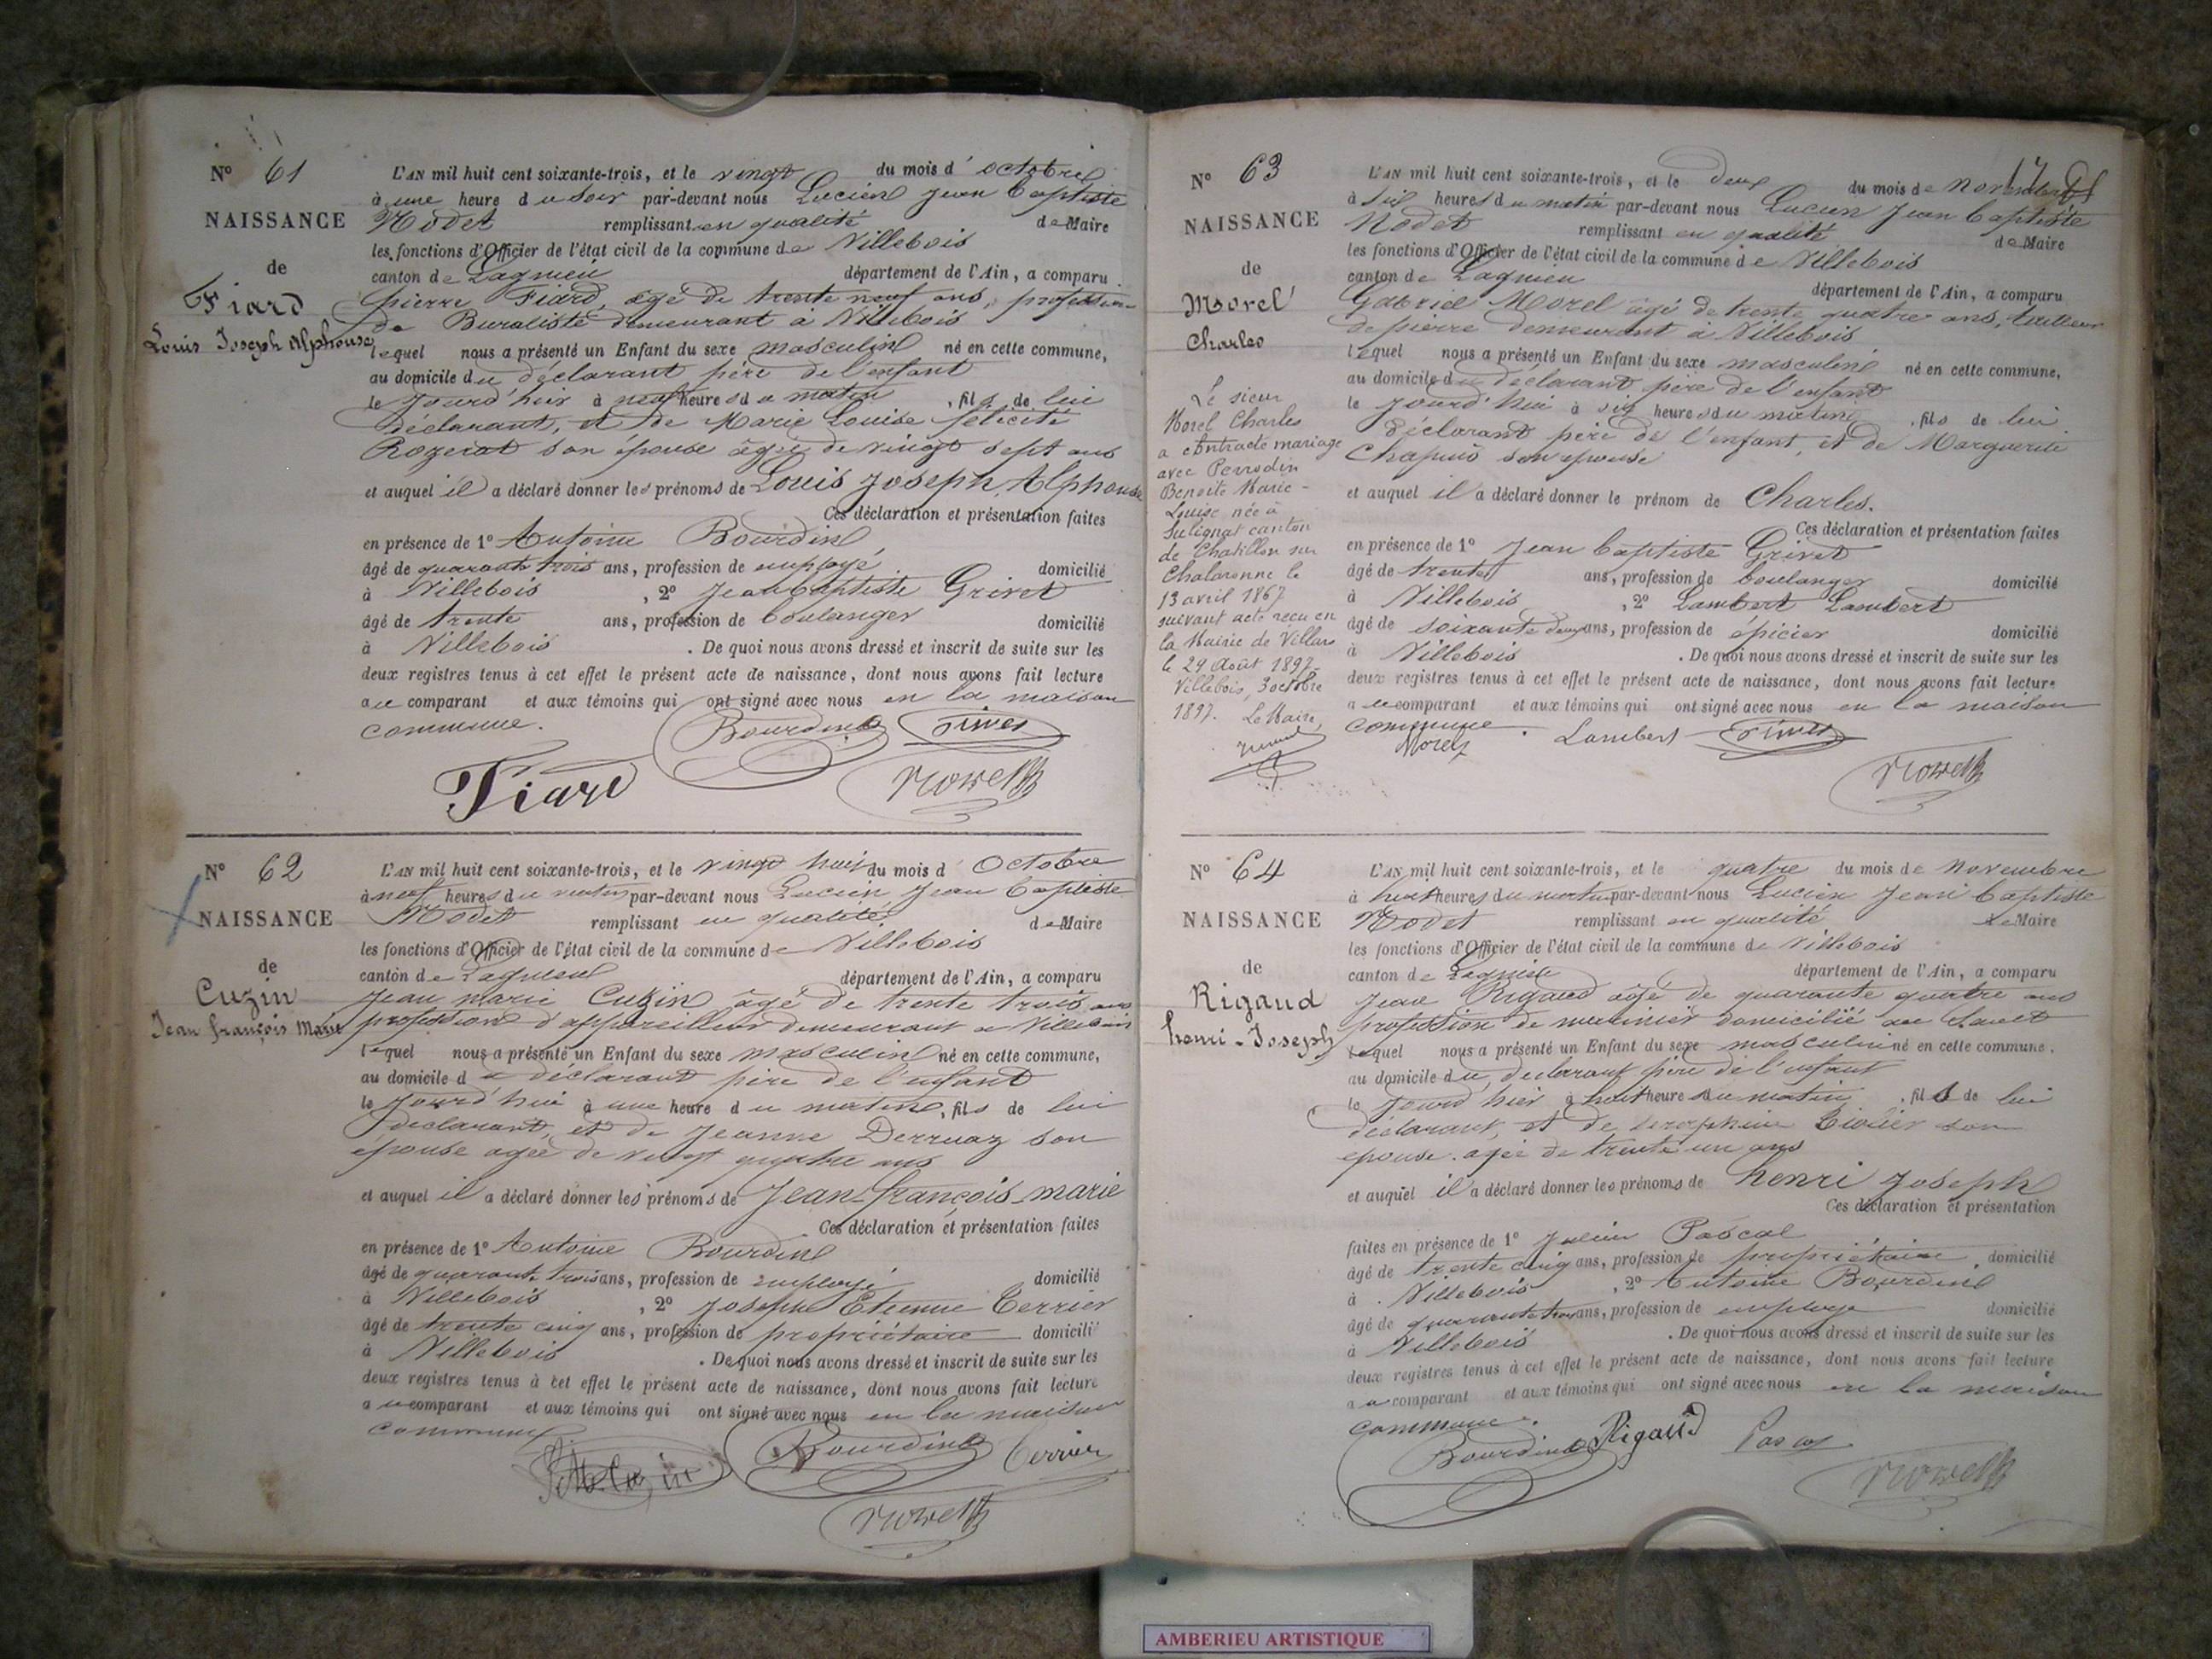 N° 61
NAISSANCE
de
Fiard
Louis Joseph Alphonse
L'AN mil huit cent soixante-trois, et le vingt du mois d'octobre
à une heure du soir par-devant nous Lucien Jean Baptiste
Nodet remplissant en qualité de Maire
les fonctions d'Officier de l'état civil de la commune de Villebois
canton de Lagnieu département de l'Ain, a comparu
pierre Fiard, agé de trente neuf ans, profession
de Buraliste demeurant à Villebois
lequel nous a présenté un Enfant du sexe masculin né en cette commune,
au domicile du déclarant père de l'enfant
le jourd'hui à neuf heures du matin, fils de lui
déclarant, et de Marie Louise félicité
Rozerat son épouse agée de vingt sept ans
et auquel il a déclaré donner les prénoms de Louis Joseph Alphonse
Ces déclaration et présentation faites
en présence de 1° Antoine Bourdin
âgé de quarante trois ans, profession de employé domicilié
à Villebois, 2° Jean baptiste Grivet
âgé de trente ans, profession de boulanger domicilié
à Villebois. De quoi nous avons dressé et inscrit de suite sur les
deux registres tenus à cet effet le présent acte de naissance, dont nous avons fait lecture
au comparant et aux témoins qui ont signé avec nous en la maison
commune.
Bourdin Grivet
Fiard
N° 62
NAISSANCE
de
Cuzin
Jean françois Marie
L'AN mil huit cent soixante-trois, et le vingt huit du mois d'Octobre
à neuf heures du matin par-devant nous Lucien Jean baptiste
Nodet remplissant en qualité de Maire
les fonctions d'Officier de l'état civil de la commune de Villebois
canton de Lagnieu département de l'Ain, a comparu
Jean marie Cuzin âgé de trente trois ans
profession d'appareilleur demeurant a Villebois
lequel nous a présenté un Enfant du sexe masculin né en cette commune,
au domicile du déclarant père de l'enfant
le jourd'hui à une heure du matin, fils de lui
déclarant, et de Jeanne Derruaz son
épouse agée de vingt quatre ans
et auquel il a déclaré donner les prénoms de Jean-françois-marie
Ces déclaration et présentation faites
en présence de 1° Antoine Bourdin
âgé de quarante trois ans, profession de employé domicilié
à Villebois, 2° Joseph Etienne Terrier
âgé de trente cinq ans, profession de propriétaire domicilié
à Villebois. De quoi nous avons dressé et inscrit de suite sur les
deux registres tenus à cet effet le présent acte de naissance, dont nous avons fait lecture
au comparant et aux témoins qui ont signé avec nous en la maison
commune
Cuzin Bourdin Terrier
N° 63
NAISSANCE
de
Morel
Charles
Le sieur
Morel Charles
a contracté mariage
avec Perrodin
Benoite Marie-
Louise née à
Sulignat canton
de Chatillon sur
Chalaronne le
13 avril 1867
suivant acte reçu en
la Mairie de Villars
le 24 Août 1897.
Villebois, 3 octobre
1897. Le Maire,
L'AN mil huit cent soixante-trois, et le deux du mois de novembre
à six heures du matin par-devant nous Lucien Jean baptiste
Nodet remplissant en qualité de Maire
les fonctions d'Officier de l'état civil de la commune de Villebois
canton de Lagnieu département de l'Ain, a comparu
Gabriel Morel agé de trente quatre ans, tailleur
de pierre demeurant à Villebois
lequel nous a présenté un Enfant du sexe masculin né en cette commune,
au domicile du déclarant père de l'enfant
le jourd'hui à six heures du matin, fils de lui
déclarant père de l'enfant, et de Marguerite
Chapuis son epouse
et auquel il a déclaré donner le prénom de Charles.
Ces déclaration et présentation faites
en présence de 1° Jean baptiste Grivet
âgé de trente ans, profession de boulanger domicilié
à Villebois, 2° Lambert Lambert
âgé de soixante deux ans, profession de épicier domicilié
à Villebois. De quoi nous avons dressé et inscrit de suite sur les
deux registres tenus à cet effet le présent acte de naissance, dont nous avons fait lecture
au comparant et aux témoins qui ont signé avec nous en la maison
commune.
Morel Lambert Grivet
N° 64
NAISSANCE
de
Rigaud
henri-Joseph
L'AN mil huit cent soixante-trois, et le quatre du mois de novembre
à huit heures du matin par-devant nous Lucien Jean baptiste
Nodet remplissant en qualité de Maire
les fonctions d'Officier de l'état civil de la commune de Villebois
canton de Lagnieu département de l'Ain, a comparu
Jean Rigaud agé de quarante quatre ans
profession de marinier domicilié au Sault
lequel nous a présenté un Enfant du sexe masculin né en cette commune.
au domicile du déclarant père de l'enfant
le jourd'hier à huit heure du matin, fils de lui
déclarant, et de seraphine son
epouse agée de trente un ans
et auquel il a déclaré donner les prénoms de henri Joseph
Ces déclaration et présentation
faites en présence de 1° Julien Pascal
âgé de trente cinq ans, profession de propriétaire domicilié
à Villebois, 2° Antoine Bourdin
âgé de quarante trois ans, profession de employé domicilié
à Villebois. De quoi nous avons dressé et inscrit de suite sur les
deux registres tenus à cet effet le présent acte de naissance, dont nous avons fait lecture
au comparant et aux témoins qui ont signé avec nous en la maison
commune.
Bourdin Rigaud Pascal
AMBERIEU ARTISTIQUE